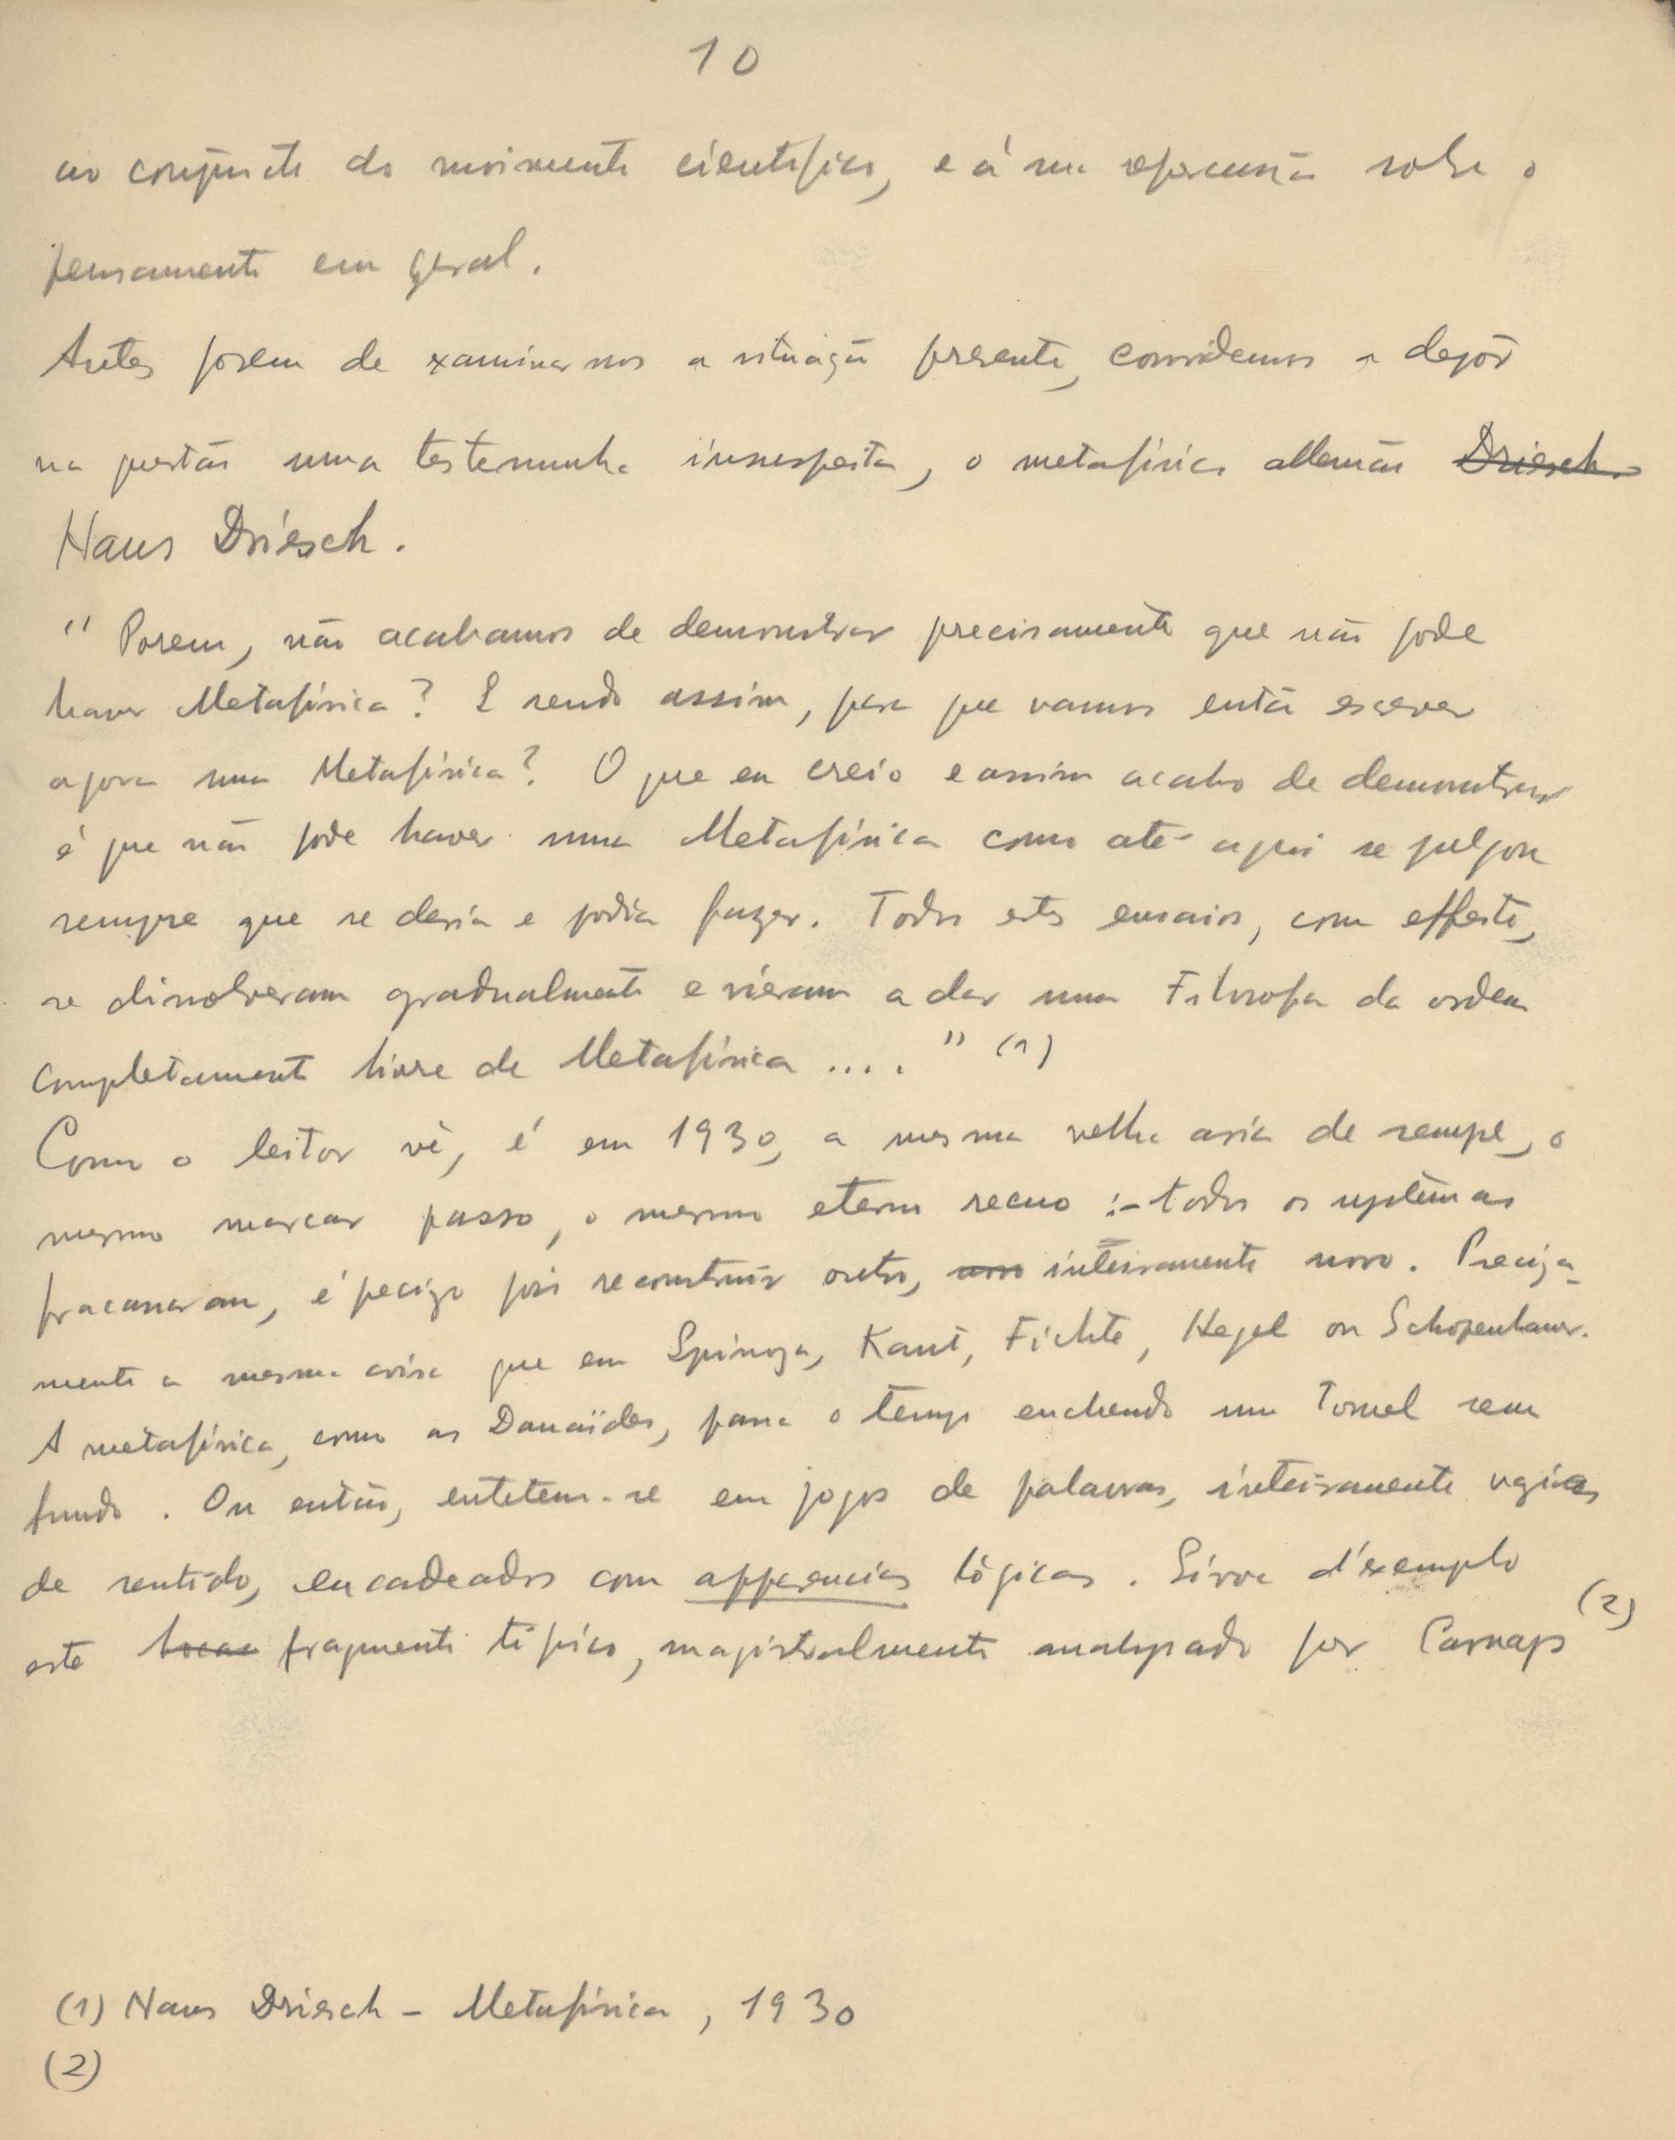 10
ao conjuncto do movimento científico, e á sua repercussão sobre o
pensamento em geral.
Antes porem de examinarmos a situação presente, convidemos a depôr
na questão uma testemunha insuspeita, o metafísico allemão Driesch
Hans Driesch.
" Porem, não acabamos de demonstrar precisamente que não pode
haver Metafísica? E sendo assim, para que vamos então escrever
agora uma Metafísica? O que eu creio e assim acabo de demonstrar
é que não pode haver uma Metafísica como até aqui se julgou
sempre que se devia e podia fazer. Todos estes ensaios, com effeito,
se dissolveram gradualmente e vieram a dar uma Filosofia da ordem
completamente livre de Metafísica .... " (1)
Como o leitor vê, é em 1930, a mesma velha aria de sempre, o
mesmo marcar passo, o mesmo eterno recuo :- todos os systêmas
fracassaram, é precizo pois reconstruir outro, novo inteiramente novo. Preciza-
mente a mesma coisa que em Spinoza, Kant, Fichte, Hegel ou Schopenhauer.
A metafísica, como as Danaïdes, passa o tempo enchendo um Tonel sem
fundo. Ou então, entetem-se em jogos de palavras, inteiramente vazios
de sentido, encadeados com apparencias lógicas. Sirva d'exemplo
este fragmento típico, magistralmente analyzado por Carnap (2)
(1) Hans Driesch - Metafísica, 1930
(2)